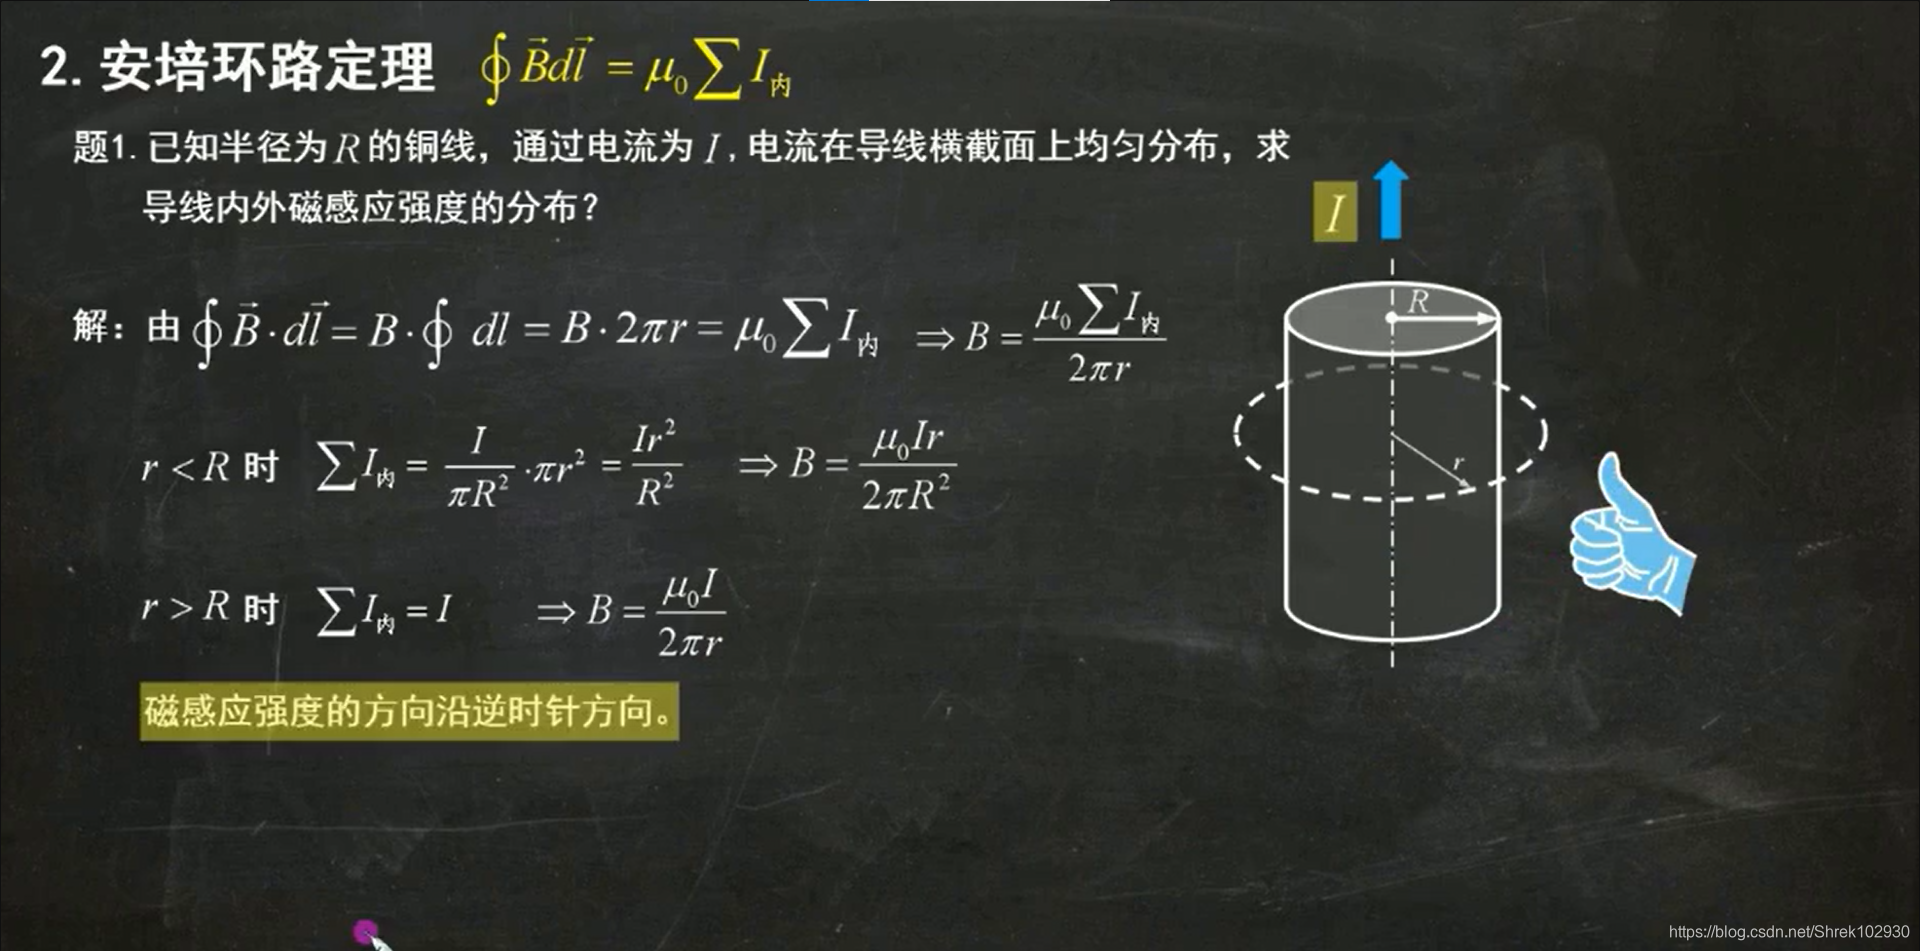 2. 安培环路定理 ∮B⃗dl⃗ = μ₀∑I内
题1. 已知半径为R的铜线，通过电流为I, 电流在导线横截面上均匀分布，求
导线内外磁感应强度的分布？
I
R
解：由∮B⃗·dl⃗ = B·∮ dl = B·2πr = μ₀∑I内 ⇒ B = μ₀∑I内 / 2πr
r < R 时 ∑I内 = I/πR² ·πr² = Ir²/R² ⇒ B = μ₀Ir / 2πR²
r
r > R 时 ∑I内 = I ⇒ B = μ₀I / 2πr
磁感应强度的方向沿逆时针方向。
https://blog.csdn.net/Shrek102930